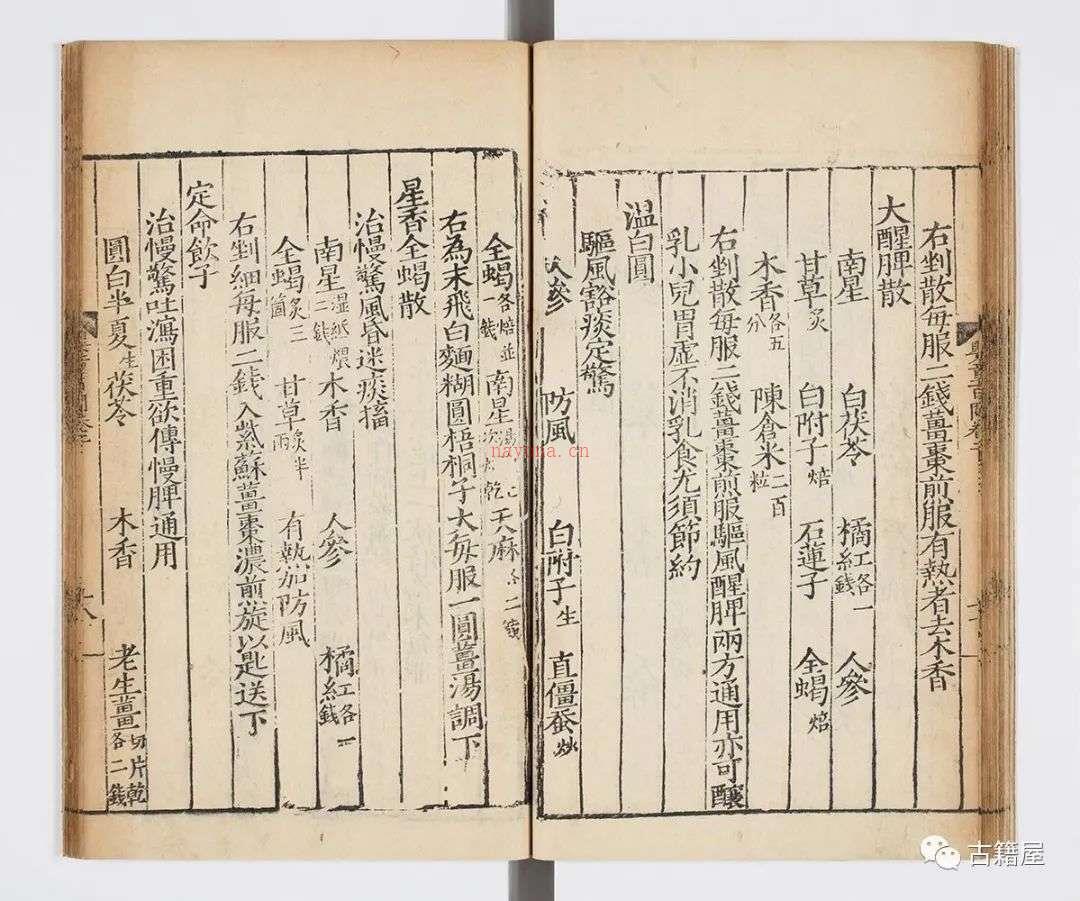 右剉散每服二錢薑棗煎服有熱者去木香
大醒脾散
南星 白茯苓 橘紅各一錢 人參
甘草炙 白附子焙 石蓮子 全蝎焙
木香各五分 陳倉米二百粒
右剉散每服二錢薑棗煎服驅風醒脾兩方通用亦可釀
乳小兒胃虛不消乳食尤須節約
溫白圓
驅風豁痰定驚
人參 防風 白附子生 直僵蚕炒
全蝎各焙並一錢 南星湯 七次 乾 天麻各二錢
右為末飛白麵糊圓梧桐子大每服一圓薑湯調下
星香全蝎散
治慢驚風昏迷痰搐
南星濕紙煨二錢 木香 人參 橘紅各一錢
全蝎炙三箇 甘草炙半兩 有熱加防風
右剉細每服二錢入紫蘇薑棗濃煎旋以匙送下
定命飲子
治慢驚吐瀉困重欲傳慢脾通用
圓白半夏生 茯苓 木香 老生薑切片乾各二錢
十八
nayona.cn
古籍屋